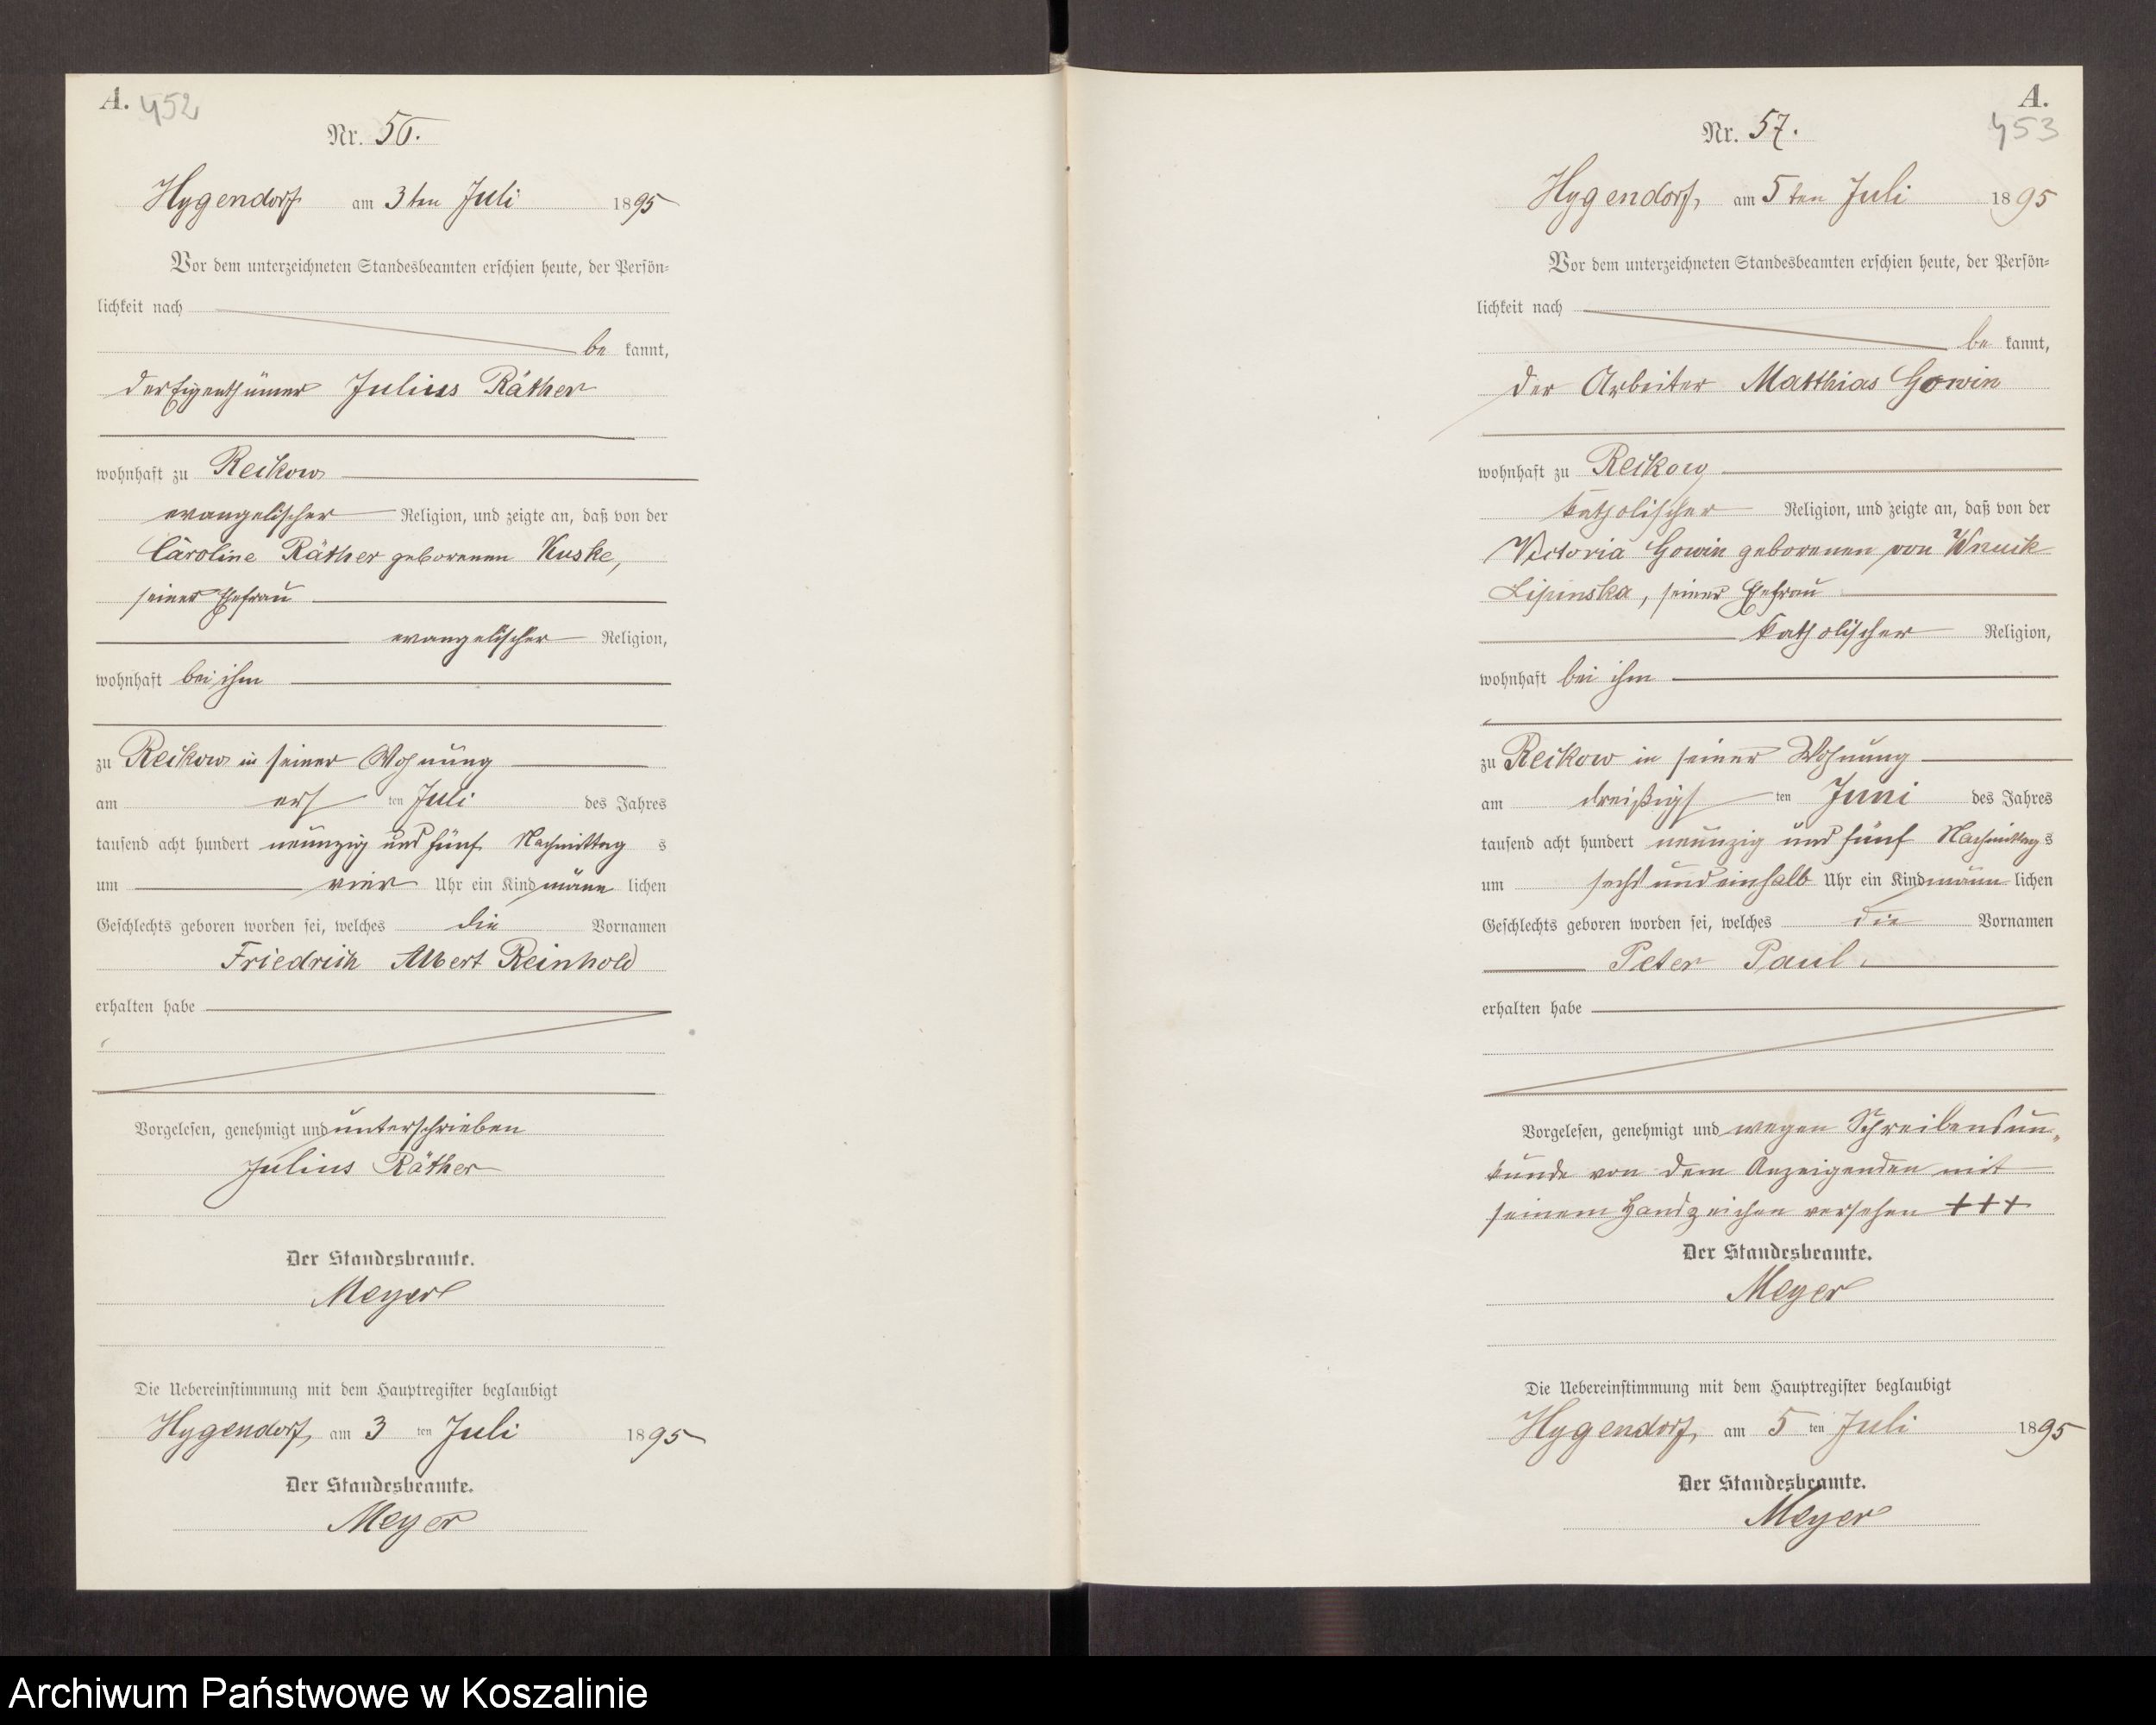 A. 452
Nr. 56.
Hygendorf am 3ten Juli 1895
Vor dem unterzeichneten Standesbeamten erschien heute, der Persön=
lichkeit nach
be kannt,
der Eigenthümer Julius Räther
wohnhaft zu Reikow
evangelischer Religion, und zeigte an, daß von der
Caroline Räther geborenen Kuske,
seiner Ehefrau
evangelischer Religion,
wohnhaft bei ihm
zu Reikow in seiner Wohnung
am erst ten Juli des Jahres
tausend acht hundert neunzig und fünf Nachmittag s
um vier Uhr ein Kind männ lichen
Geschlechts geboren worden sei, welches die Vornamen
Friedrich Albert Reinhold
erhalten habe
Vorgelesen, genehmigt und unterschrieben
Julius Räther
Der Standesbeamte.
Meyer
Die Uebereinstimmung mit dem Hauptregister beglaubigt
Hygendorf, am 3 ten Juli 1895
Der Standesbeamte.
Meyer
A.
453
Nr. 57.
Hygendorf, am 5ten Juli 1895
Vor dem unterzeichneten Standesbeamten erschien heute, der Persön=
lichkeit nach
be kannt,
der Arbeiter Matthias Gowin
wohnhaft zu Reikow
katholischer Religion, und zeigte an, daß von der
Victoria Gowin geborenen von Wnuck
Lipinska, seiner Ehefrau
katholischer Religion,
wohnhaft bei ihm
zu Reikow in seiner Wohnung
am dreißigst ten Juni des Jahres
tausend acht hundert neunzig und fünf Nachmittag s
um sechs und einhalb Uhr ein Kind männ lichen
Geschlechts geboren worden sei, welches die Vornamen
Peter Paul.
erhalten habe
Vorgelesen, genehmigt und wegen Schreibensun„
kunde von dem Anzeigenden mit
seinem Handzeichen versehen +++
Der Standesbeamte.
Meyer
Die Uebereinstimmung mit dem Hauptregister beglaubigt
Hygendorf, am 5 ten Juli 1895
Der Standesbeamte.
Meyer
Archiwum Państwowe w Koszalinie